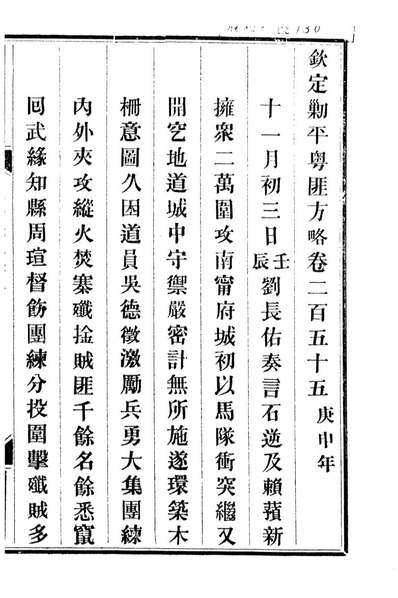 欽定勦平粵匪方略卷二百五十五庚申年
十一月初三日壬辰劉長佑奏言石逆及賴蘋新
擁衆二萬圍攻南甯府城初以馬隊衝突繼又
開空地道城中守禦嚴密計無所施遂環築木
柵意圖久困道員吳德徵激厲兵勇大集團練
內外夾攻縱火焚寨殲捡賊匪千餘名餘悉竄
囘武緣知縣周瑄督飭團練分投圍擊殲賊多